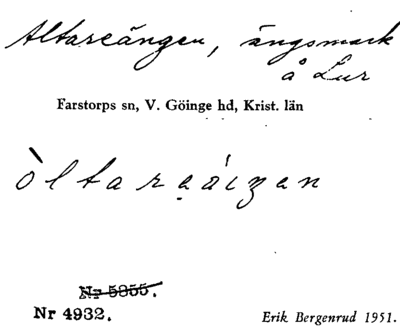 Altareängen, ängsmark
å Lur
Farstorps sn, V. Göinge hd, Krist. län
Nr 5855.
Nr 4932.
Erik Bergenrud 1951.